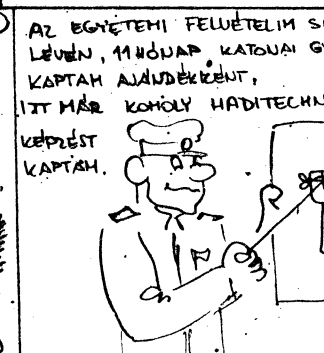 AZ EGYETEMI FELVÉTELIM S
LÉVÉN, 11 HÓNAP KATONAI G
KAPTAM AJÁNDÉKKÉNT,
ITT MÁR KOMOLY HADITECHN
KÉPZÉST
KAPTAM.